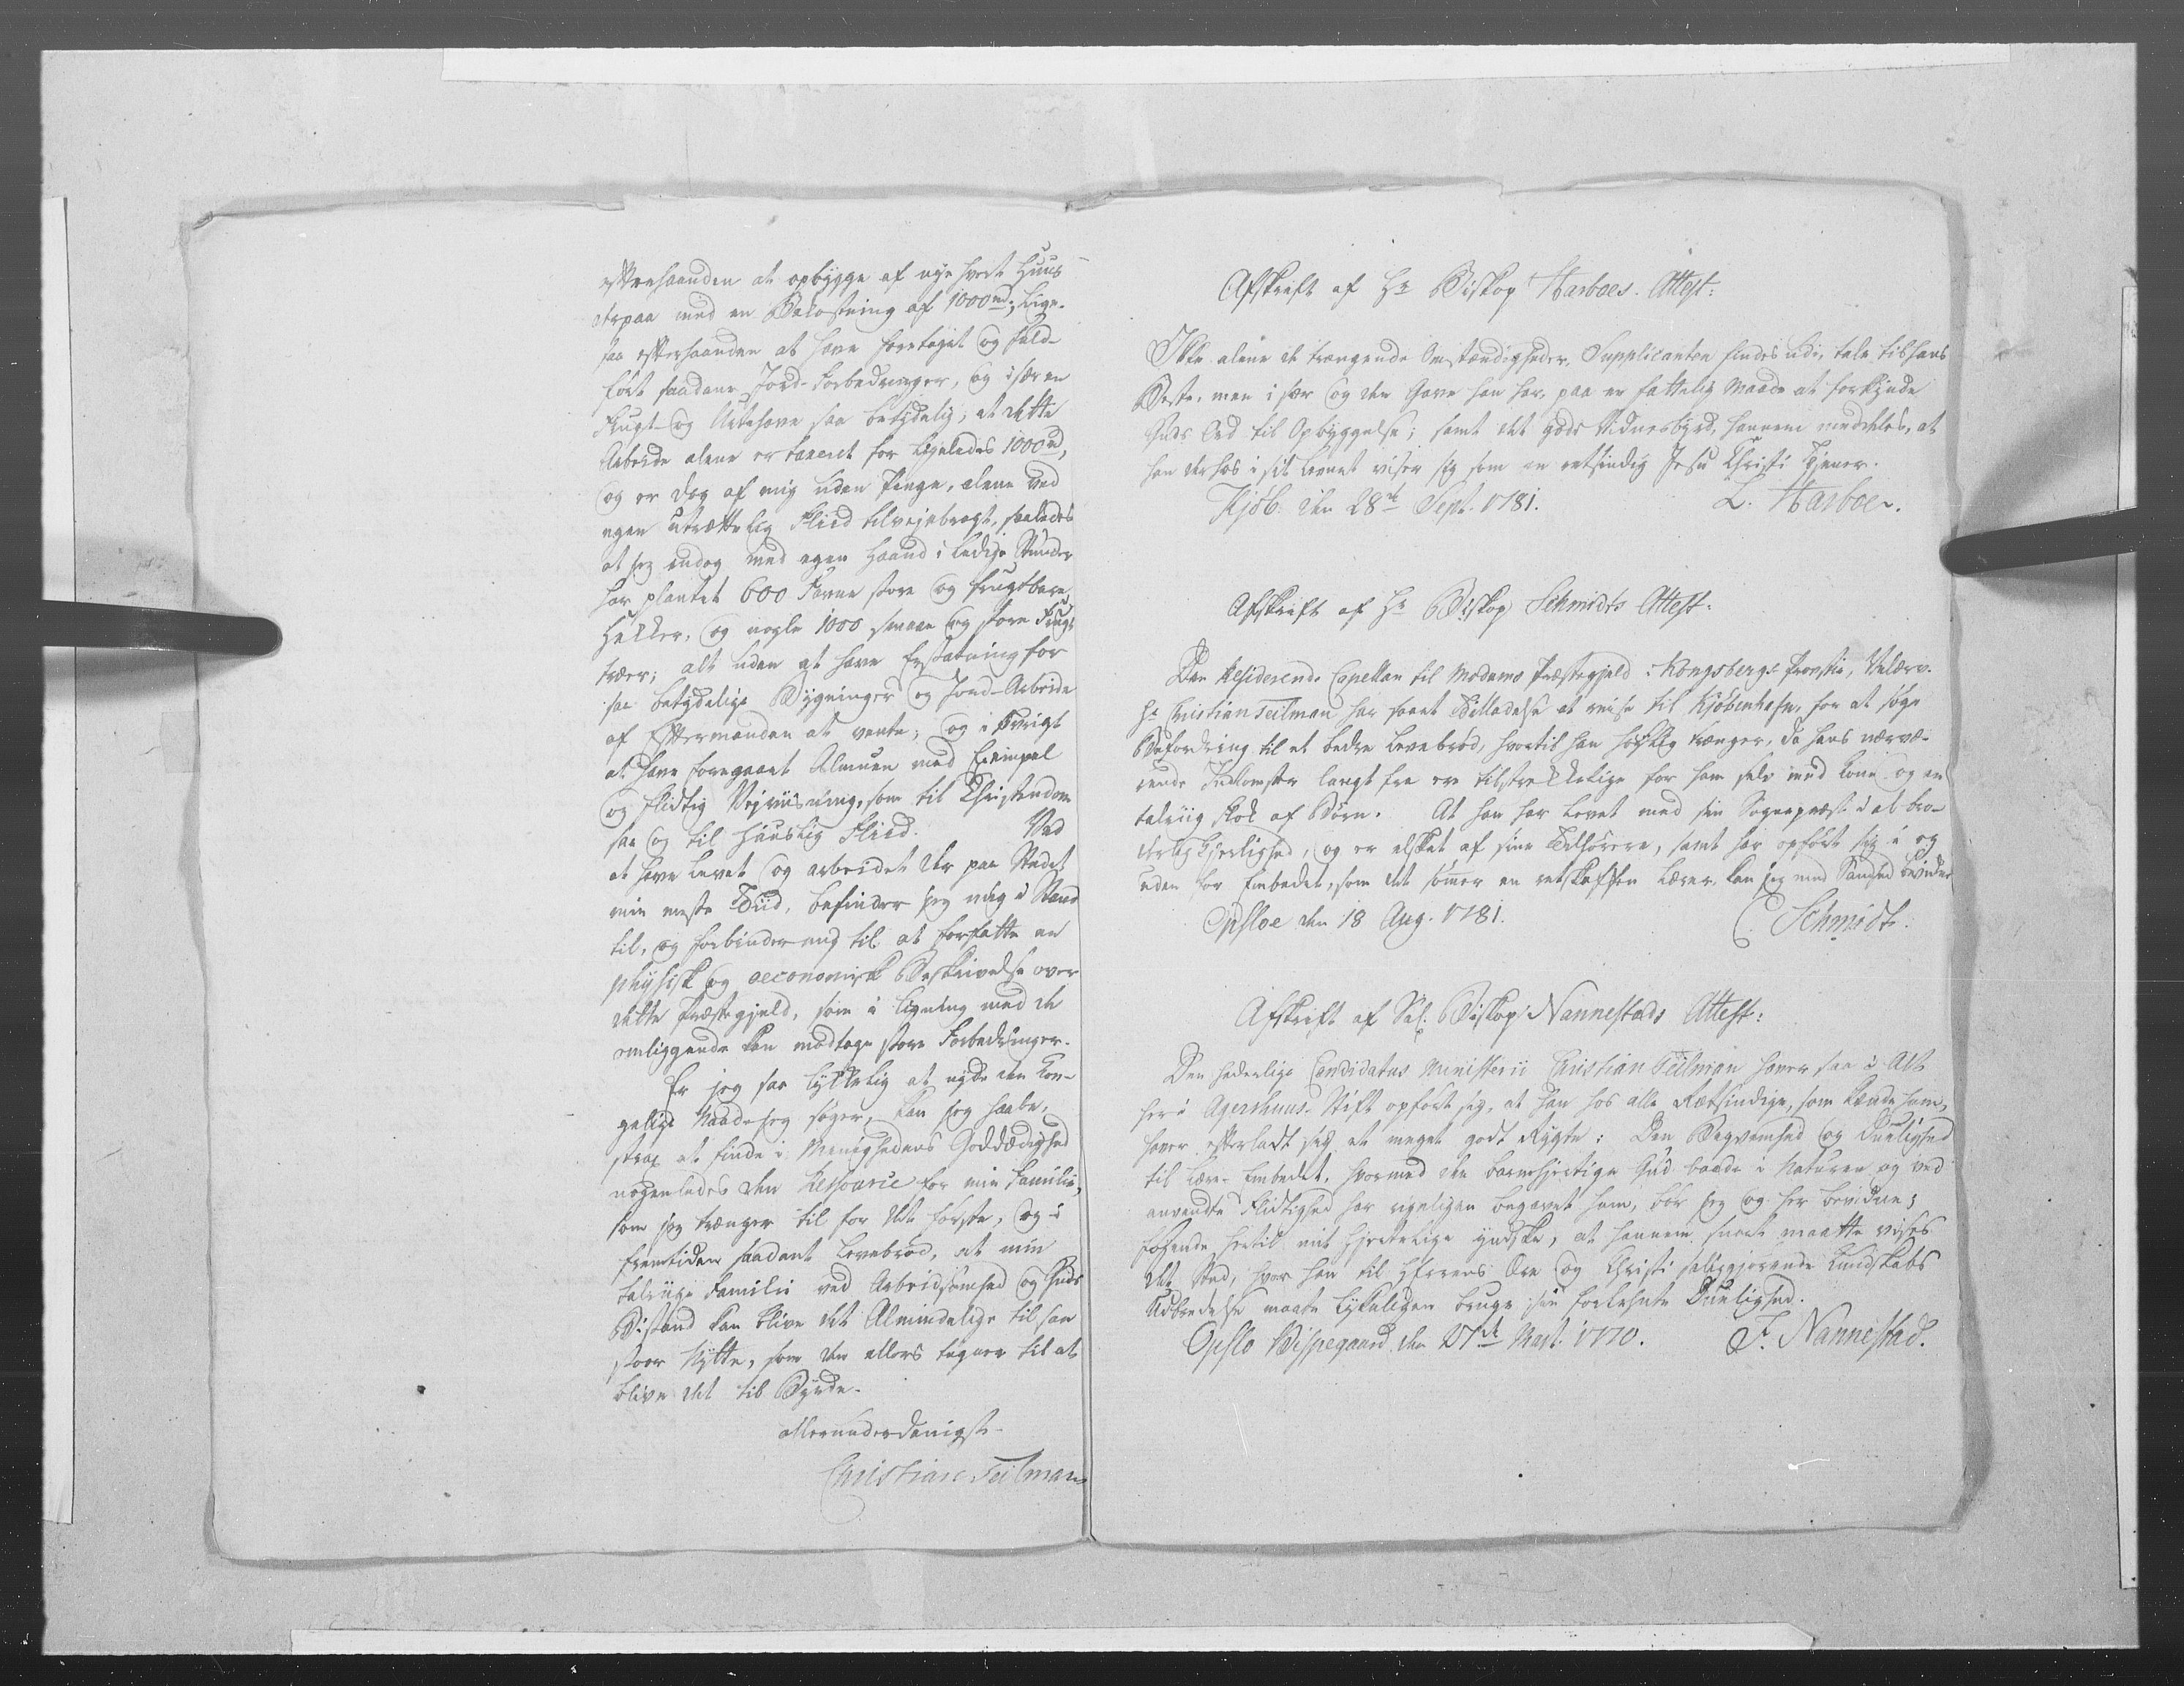 efterhaanden at opbygge af nye hvert Huus
derpaa med en Bekostning af 1000 rd; Lige-
saa efterhaanden at have foretaget og fuld-
ført saadane Jord-Forbedringer, og især en
Frugt- og Urtehave saa betydelig, at dette
Arbeide alene er taxeret for ligeledes 1000 rd,
og er dog af mig uden Penge, alene ved
egen utrættelig Fliid tilvejebragt, saaledes
at jeg endog med egen Haand i ledige Stunder
har plantet 600 Favne store og frugtbare
Hekker, og nogle 1000 smaae og store Frugt
træer; alt uden at have Erstatning for
saa betydelige Bygninger og Jord-Arbeide
af Eftermanden at vente; og i øvrigt
at have foregaaet Almuen med Exempel
og flidtig Vejviisning, som til Christendom
saa og til huuslig Fliid. Ved
at have levet og arbeidet her paa Stedet
min meste Tiid, befinder jeg mig i Stand
til, og forbinder mig til at forfatte en
physisk og oeconomisk Beskrivelse over
dette Præstegjeld, som i Ligning med de
omliggende kan modtage store Forbedringer.
Er jeg saa lykkelig at nyde den Kon-
gelige Naade jeg søger, kan jeg haabe,
strax at finde i Menighedens Goddædighed
nogenledes den Ressource for min Familie,
som jeg trænger til for det første, og i
Fremtiden saadant Levebrød, at min
talrige Familie ved Arbeidsomhed og Guds
Bistand kan blive det Almindelige til saa
stoor Nytte, som den ellers tegner til at
blive det til Byrde.
allerunderdanigst
Christian Teilman
Afskrift af Hr Biskop Harboes Attest:
Ikke alene de trængende Omstændigheder, Supplicanten findes udi, tale til hans
Beste, men i sær og den Gave han har, paa en fattelig Maade at forkynde
Guds Ord til Opbyggelse; samt det gode Vidnesbyrd, hannem meddeles, at
han derhos i sit Levnet viser sig som en retsindig Jesu Christi Tjener.
Kjøb: den 28de Sept. 1781. L. Harboe.
Afskrift af Hr Biskop Schmidts Attest:
Den Residerende Capellan til Modums Præstegjeld i Kongsbergs Provstie, Velærv.
Hr Christian Teilman har faaet Tilladelse at reise til Kjøbenhafn, for at søge
Befordring til et bedre Levebrød, hvortil han høilig trænger, da hans nærvæ-
rende Indkomster langt fra ere tilstrekkelige for ham selv med Kone og en
talriig flok af Børn. At han har levet med sin Sognepræst i al bro-
derlig Kjerlighed, og er elsket af sine Tilhørere, samt har opført sig i og
uden for Embedet, som det sømer en retskaffen Lærer, kan jeg med Sandhed bevidne
Opsloe den 18 Aug. 1781. C. Schmidt.
Afskrift af Sal. Biskop Nannestads Attest:
Den hederlige Candidatus Ministerii Christian Teilman haver saa i Alt
her i Agershuus-Stift opført sig, at han hos alle Retsindige, som kende ham,
haver efterladt sig et meget godt Rygte: Den Beqvemhed og Duelighed
til Lære-Embedet, hvormed den barmhjertige Gud baade i Naturen og ved
anvendte Flidtighed har rigeligen begavet ham, bør jeg og her bevidne;
føyende hertil mit hjertelige Yndske, at hannem snart maatte vises
det Sted, hvor han til HErrens Ære og Christi saliggjørende Kundskabs
Udbredelse maate lykkeligen bruge sin forlehnte Duelighed.
Opslo Bispegaard, den 27de Mart. 1770. F. Nannestad.